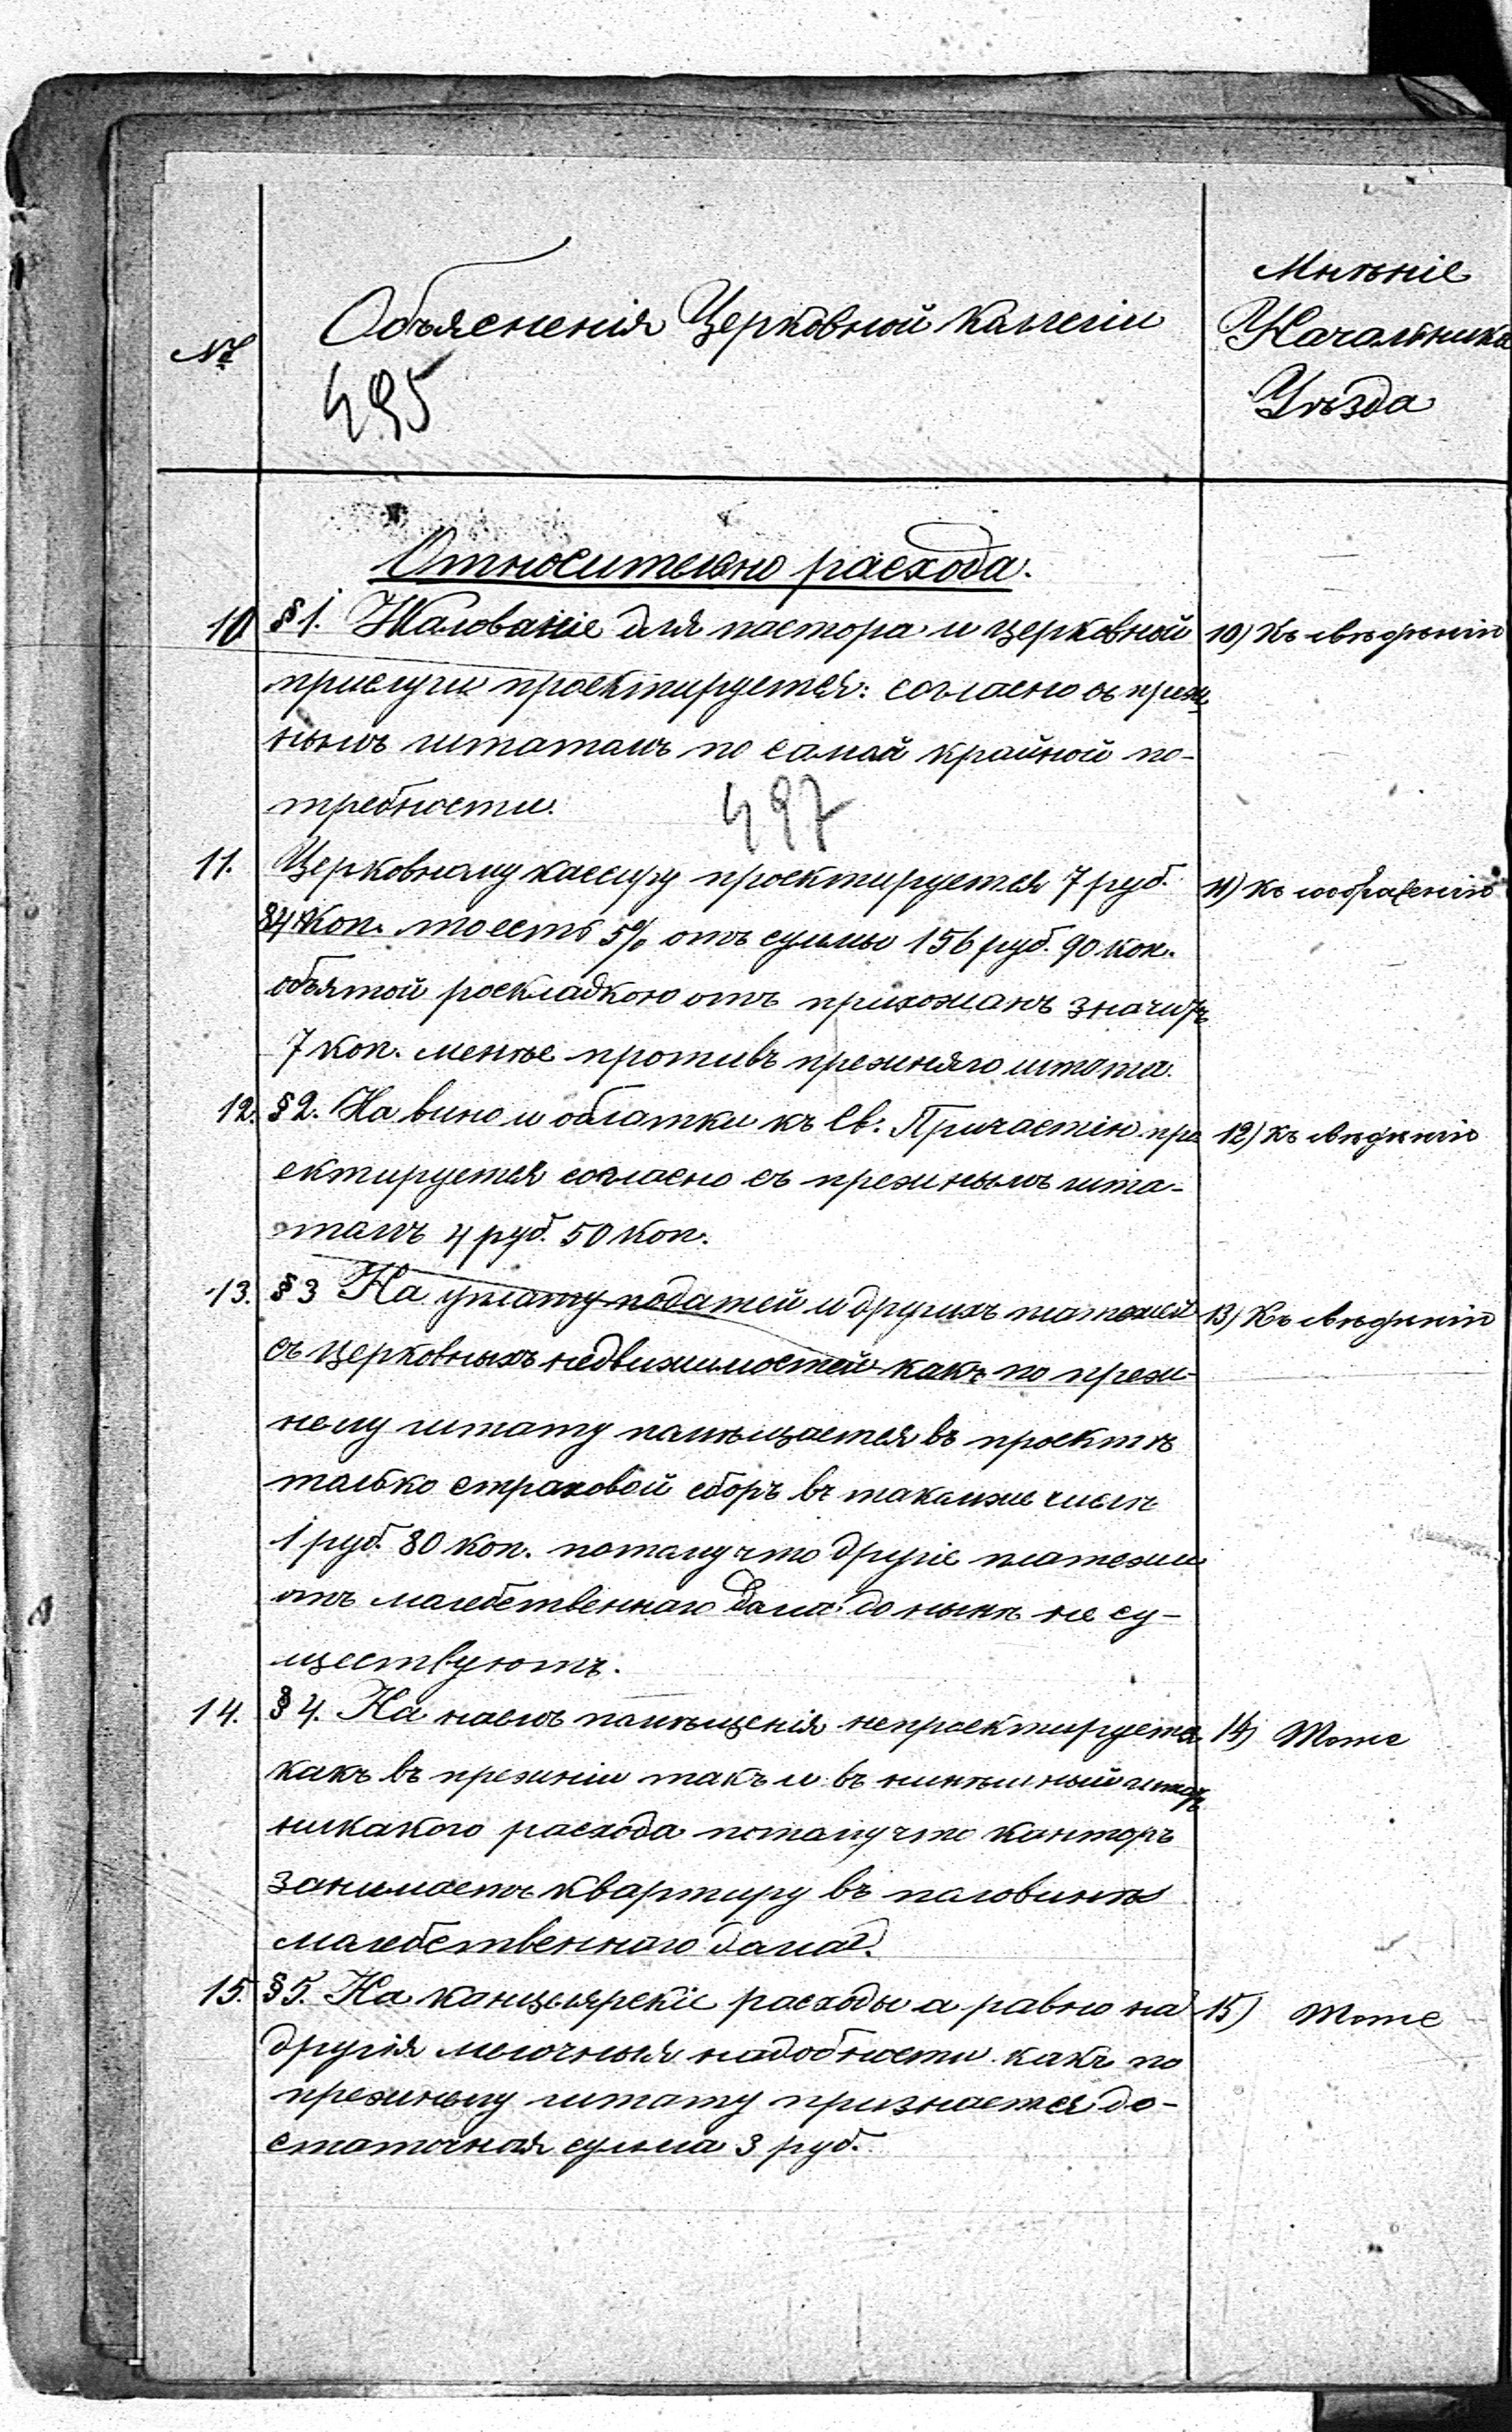 №
Объясненія Церковной каллегіи
Мнѣніе
Начальника
Уѣзда
495
Относительно расхода.
10. §1. Жалованіе для пастора и церковной
10) Къ свѣдѣнію
прислуги проектируется: согласно съ преж
нымъ штатамъ по самой крайной по-
требности.
497
11. Церковному кассиру проектируется 7 руб.
11) Къ соображенію
84 коп. то есть 5% отъ суммы 156 руб. 90 коп.
объятой роскладкою отъ прихожанъ значитъ
7 коп. менѣе противъ прежняго штата.
12. §2. На вино и облатки къ Св. Причастію про
12) Къ свѣдѣнію
ектируется согласно съ прежнымъ шта-
тамъ 4 руб. 50 коп.
13. §3 На уплату податей и другихъ платежей
13) Къ свѣдѣнію
съ церковныхъ недвижимостей какъ по преж-
нему штату памѣщается въ проектѣ
только страховой сборъ въ такомже числѣ
1 руб. 80 коп. потому что другіе платежи
отъ малебственнаго дама до нынѣ не су-
ществуютъ.
14. §4. На наемъ памѣщенія непроектируется
14) Тоже
какъ въ прежніи такъ и въ нинѣшный штатъ
никакого расхода потому что канторъ
занимаетъ квартиру въ паловинѣ
малебственнаго дама.
15. §5. На канцелярскіе расходы а равно на
15) Тоже
другія мелочныя надобности какъ по
прежнему штату признается до-
статочная сумма 3 руб.